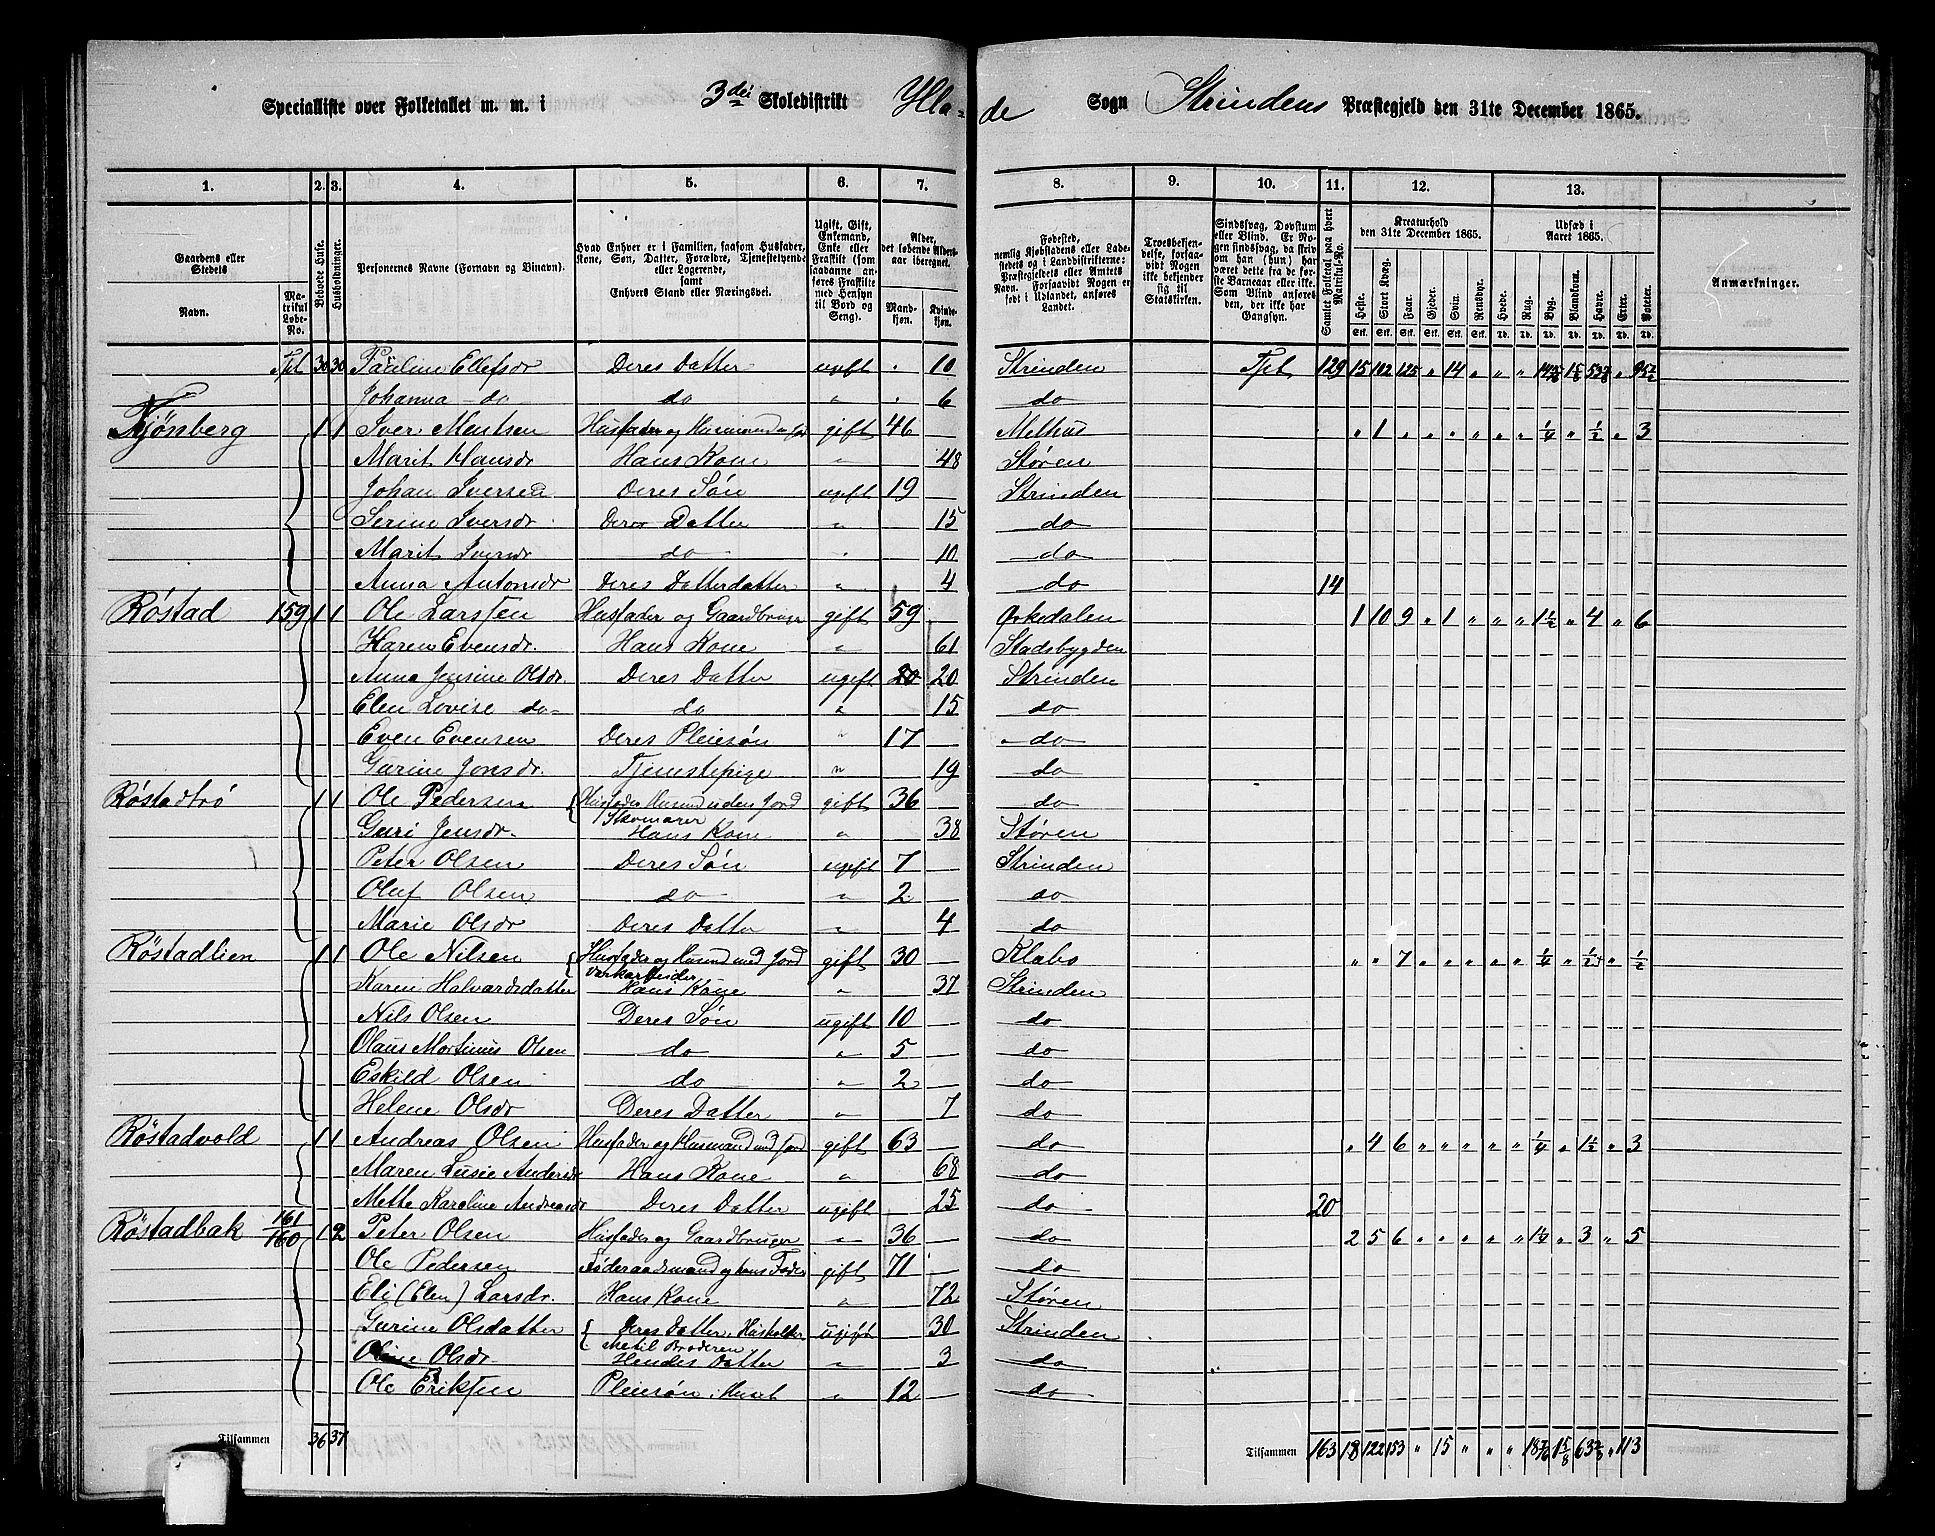 Specialliste over Folketallet m. m. i 3die Skoledistrikt Hla-de Sogn Strindens Præstegjeld den 31te December 1865.
1. 2. 3. 4. 5. 6. 7. 8. 9. 10. 11. 12. 13.
Gaardens eller Stedets
Navn.
Matrikul Løbe-No.
Beboede Huse.
Husholdninger.
Personernes Navne (Fornavn og Tilnavn).
Hvad Enhver er i Familien, saasom Husfader, Kone, Søn, Datter, Forældre, Tjenestetyende eller Logerende,
samt
Enhvers Stand eller Næringsvei.
Ugift, Gift, Enkemand, Enke eller Fraskilt (som saadanne anføres Fraskilte med Hensyn til Bord og Seng).
Alder, det løbende Alders-aar iberegnet.
Mandkjøn. Kvindekjøn.
Fødested,
nemlig Kjøbstadens eller Ladestedets eller i Landdistrikterne: Præstegjeldets eller Amtets Navn. Forsaavidt Nogen er født i Udlandet, anføres Landet.
Troesbekjendelse, forsaavidt Nogen ikke bekjender sig til Statskirken.
Sindssvag, Døvstum eller Blind. Er Nogen sindssvag, da skrives om han (hun) har været dette fra de første Barneaar eller ikke. Som Blind anføres den, der ikke har Gangsyn.
Samlet Folketal paa hvert Matrikul-No.
Kreaturhold
den 31te December 1865.
Heste. Stort Kvæg. Faar. Gjeder. Svin. Rensdyr.
Udsæd i
Aaret 1865.
Hvede. Rug. Byg. Blandkorn. Havre. Erter. Poteter.
Anmærkninger.
Tpt 30 30 Pauline Ellefsdr Deres Datter ugift " 10 Strinden Tpt 129 15 102 125 " 14 " " "
Johanna do do " " 6 do
Tjønberg 1 1 Iver Mentsen Husfader og Husmand m jord gift 46 Melhus " 1 " " " " " " 1/4 " 1/2 " 3
Marit Hansdr Hans Kone " 48 Støren
Johan Iversen Deres Søn ugift 19 Strinden
Serine Iversdr Deres Datter " 15 do
Marit Iversdr do " 10 do
Anna Antonsdr Deres Datterdatter " 4 do 14
Røstad 159 1 1 Ole Larssen Husfader og Gaardbruger gift 59 Orkedalen 1 10 9 " 1 " " " 1 1/2 " 4 " 6
Karen Evensdr Hans Kone " 61 Stadsbygden
Anna Jensine Olsdr Deres Datter ugift 20 20 Strinden
Elen Lovise do do " 15 do
Even Evensen Deres Pleiesøn " 17 do
Gurine Jonsdr. Tjenestepige " 19 do
Røstadtrø 1 1 Ole Pedersen Husfader Husmd uden Jord Skomager gift 36 do
Guri Jensdr. Hans Kone " 38 Støren
Peter Olsen Deres Søn ugift 7 Strinden
Oluf Olsen do " 2 do
Marie Olsdr Deres Datter " 4 do
Røstadlien 1 1 Ole Nilsen Husfader og Husmd med Jord gift 30 Klæbo " " 7 " " " " " 1/4 " 1/2 " 1/2
Karen Halvardsdatter Hans Kone " 37 Strinden
Nils Olsen Deres Søn ugift 10 do
Olaus Martinus Olsen do " 5 do
Eskild Olsen do " 2 do
Helene Olsdr Deres Datter " 7 do
Røstadvold 1 1 Andreas Olsen Husfader og Husmand med Jord gift 63 do " 4 6 " " " " " 1/4 " 1 1/2 " 3
Maren Lusie Andersdr Hans Kone " 68 do
Mette Karoline Andreasdr Deres Datter ugift 25 do 20
Røstadbak 161 160 1 2 Peter Olsen Husfader og Gaardbruger " 36 do 2 5 6 " " " " " 1 1/4 " 3 " 5
Ole Pedersen Føderaadsmand og hans Fader gift 71 do
Eli (Elen) Larsdr. Hans Kone " 72 Støren
Gurine Olsdatter Deres Datter, Husholder ugift 30 Strinden
Oline Olsdr Hendes Datter " 3 do
Ole Eriksen Pleiesøn i Huset " 12 do
Tilsammen 36 37 Tilsammen 163 18 122 153 " 15 " " " " 113